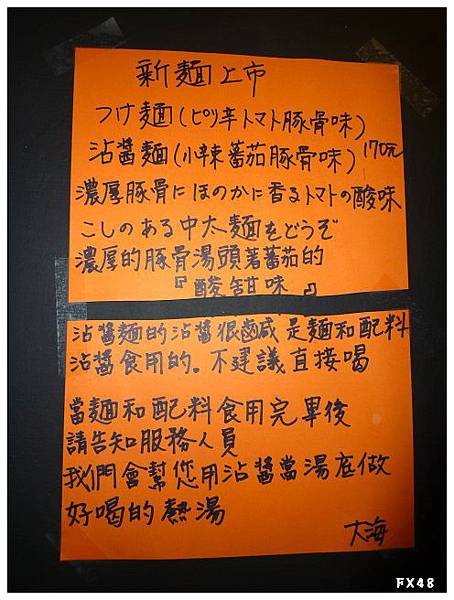 新麵上市
つけ麵(ピリ辛トマト豚骨味)
沾醬麵(小辣蕃茄豚骨味) 170元
濃厚豚骨にほのかに香るトマトの酸味
こしのある中太麵をどうぞ
濃厚的豚骨湯頭著蕃茄的
『酸甜味』
沾醬麵的沾醬很鹹是麵和配料
沾醬食用的。不建議直接喝
當麵和配料食用完畢後
請告知服務人員
我們會幫您用沾醬當湯底做
好喝的熱湯
大海
FX48